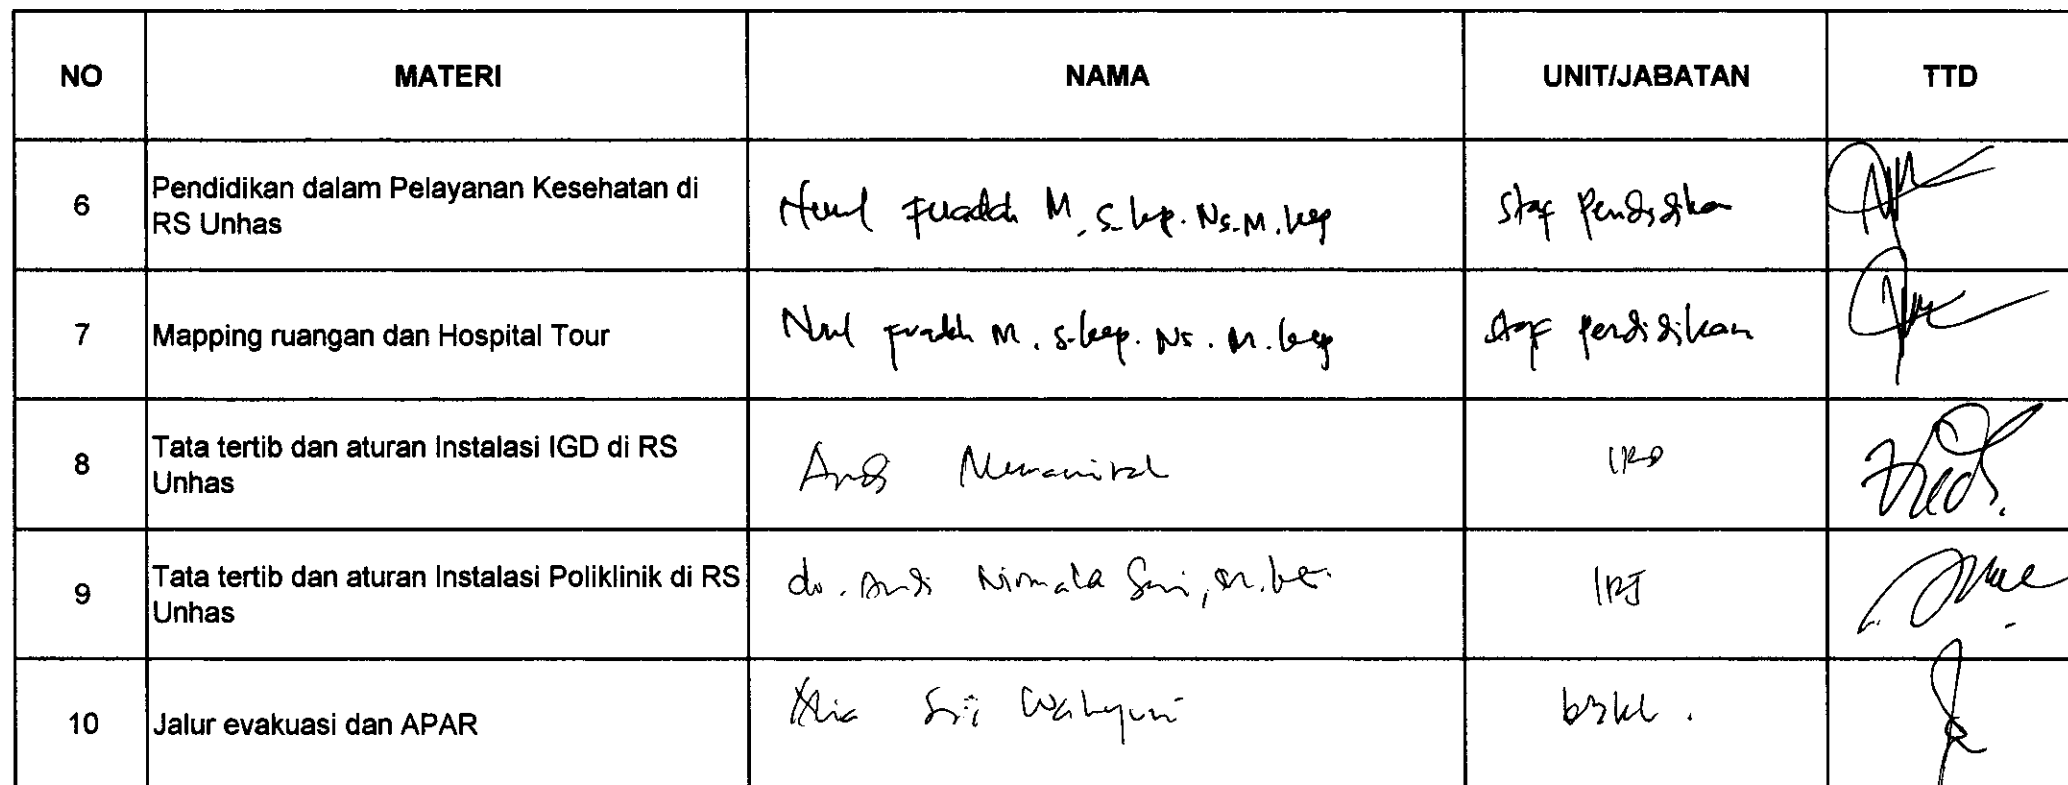 NO MATERI NAMA UNIT/JABATAN TTD
6 Pendidikan dalam Pelayanan Kesehatan di
RS Unhas
Nurul Fuaddah M, S.kep.Ns.M.kep Staf Pendidikan
7 Mapping ruangan dan Hospital Tour Nurul Fuaddah M. S.kep. Ns. M.kep Staf pendidikan
8 Tata tertib dan aturan Instalasi IGD di RS
Unhas
Andi IRD
9 Tata tertib dan aturan Instalasi Poliklinik di RS
Unhas
dr. Andi Nirmala Sari, IRJ
10 Jalur evakuasi dan APAR Sri Wahyuni